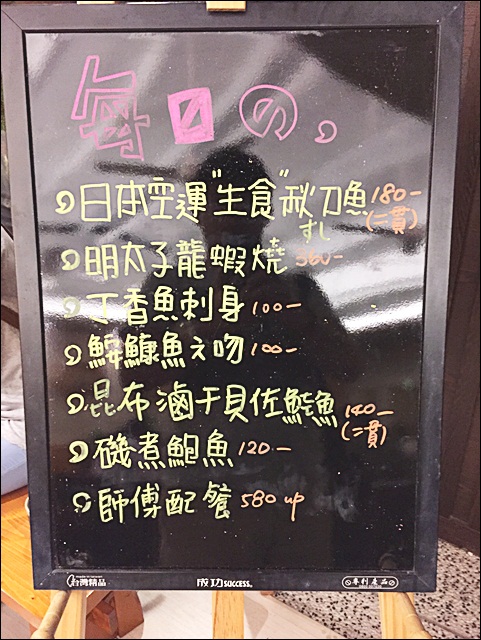 每日の,
日本空運"生食"秋刀魚 180-
すし (二貫)
明太子龍蝦燒 360-
丁香魚刺身 100-
鮟鱇魚之吻 100-
昆布滷干貝佐鮭魚 140-
(二貫)
磯煮鮑魚 120-
師傅配餐 580 up
台灣精品
成功 success.
專利產品